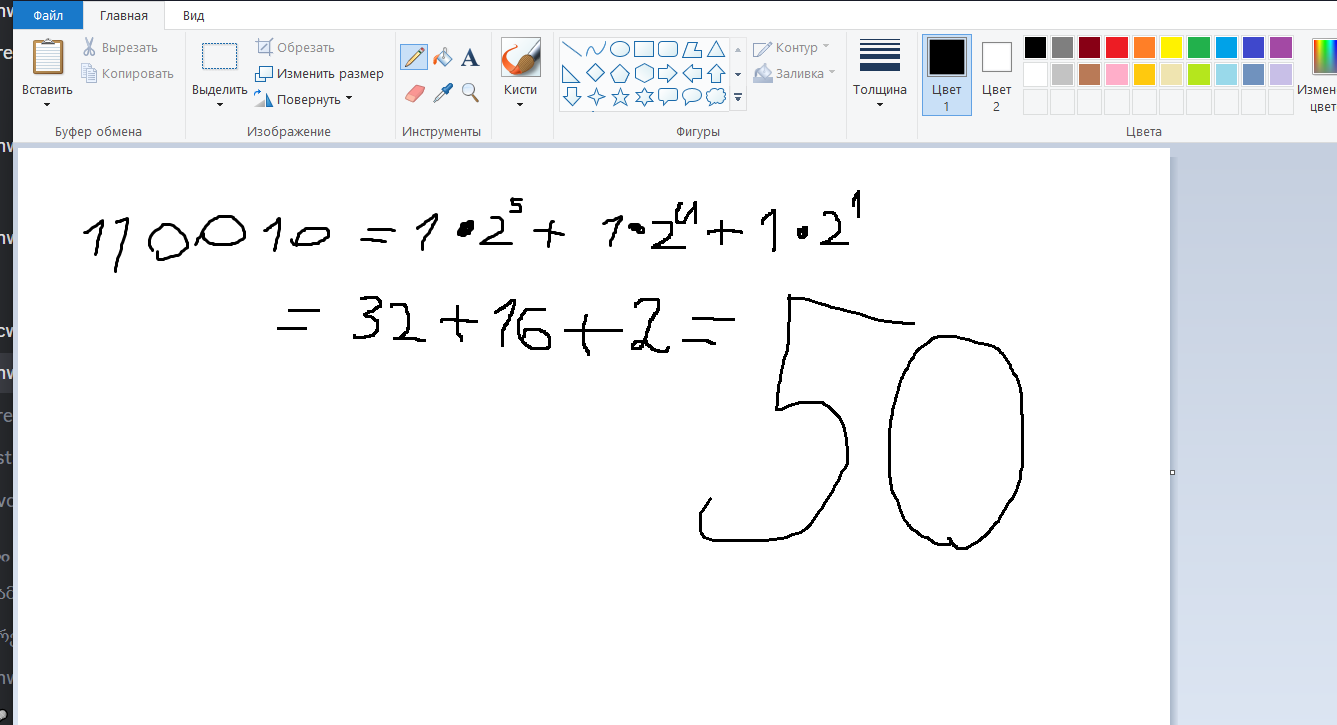 Файл Главная Вид
Вставить
Вырезать
Копировать
Буфер обмена
Выделить
Обрезать
Изменить размер
Повернуть
Изображение
A
Инструменты
Кисти
Фигуры
Контур
Заливка
Толщина
Цвет
1
Цвет
2
Цвета
110010 = 1 • 2⁵ + 1 • 2⁴ + 1 • 2¹
= 32 + 16 + 2 = 50